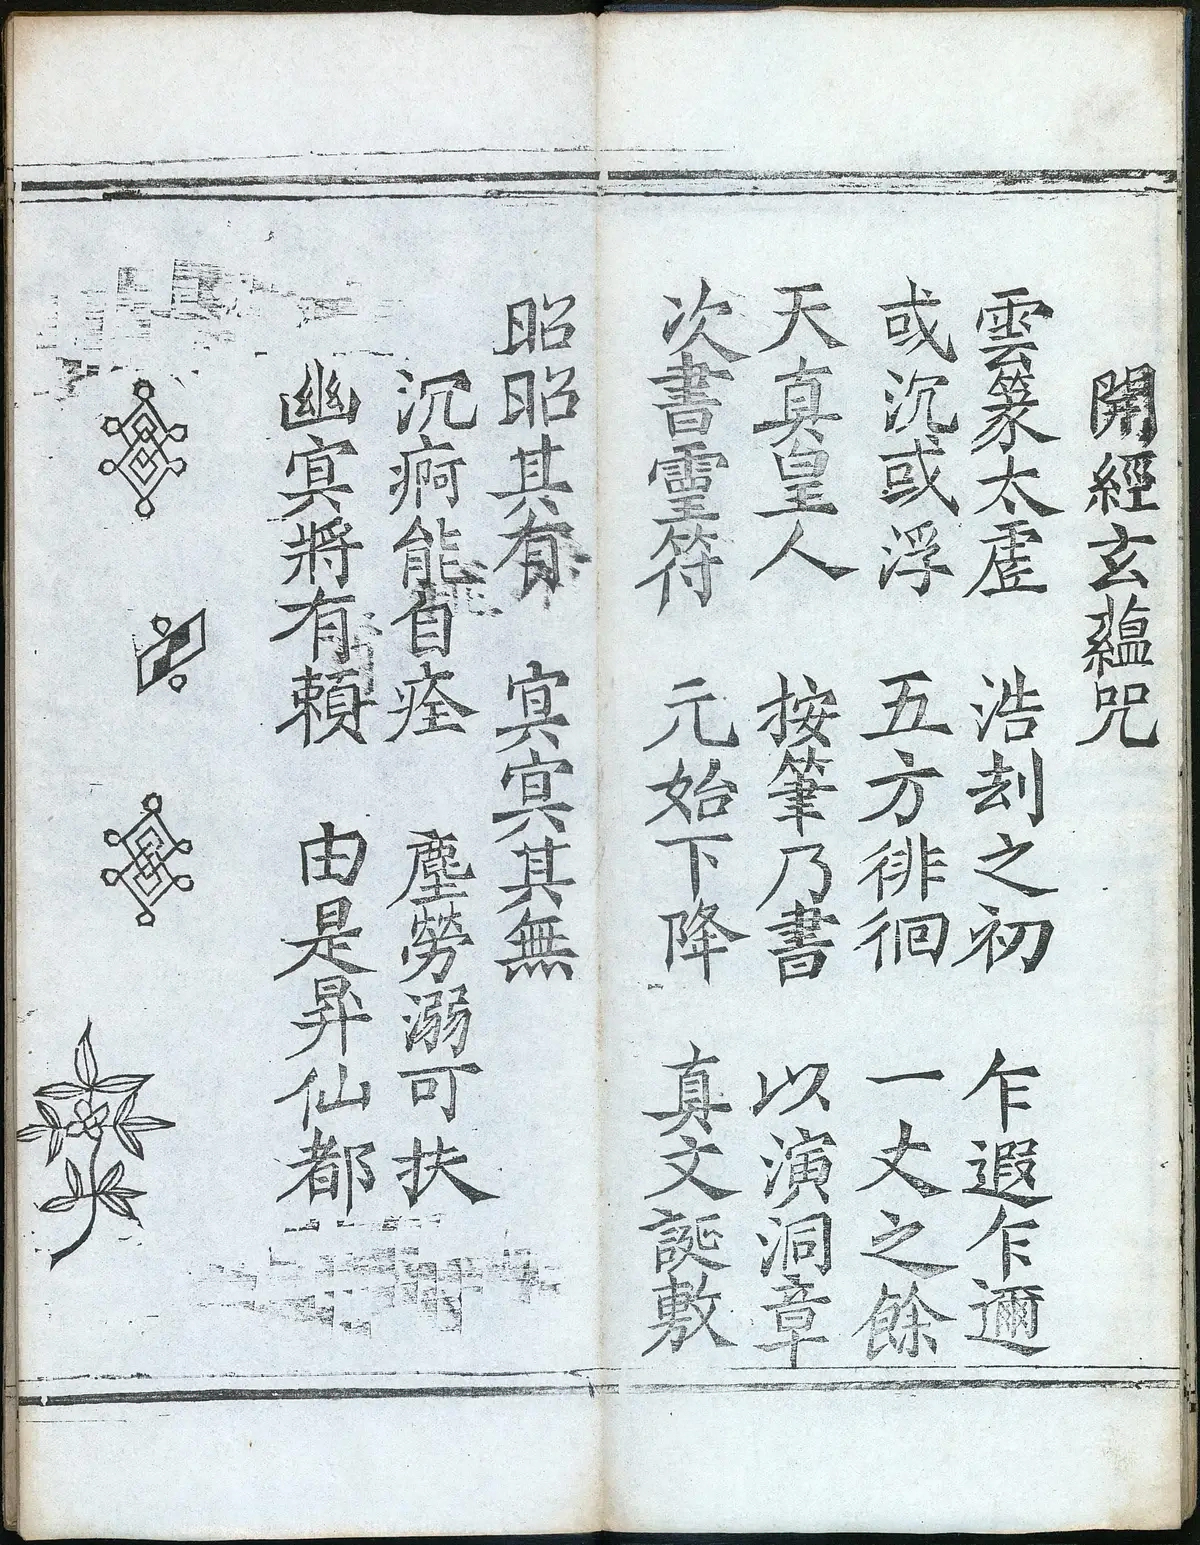 開經玄蘊咒
雲篆太虛 浩刼之初 乍遐乍邇
或沉或浮 五方徘徊 一丈之餘
天真皇人 按筆乃書 以演洞章
次書靈符 元始下降 真文誕敷
昭昭其有 冥冥其無
沉痾能自痊 塵勞溺可扶
幽冥將有賴 由是昇仙都